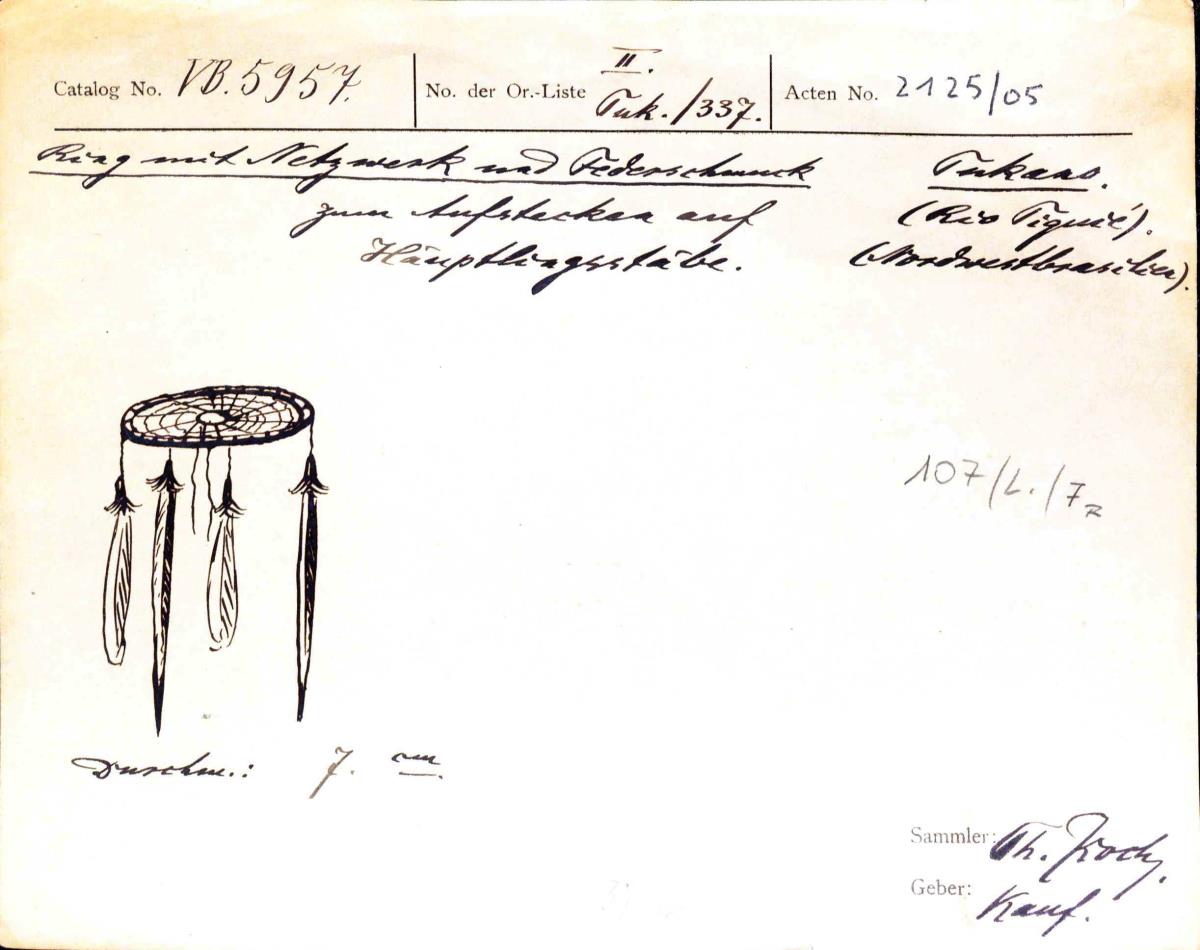 Catalog No. VB. 5957.
No. der Or.-Liste II. Tuk./337.
Acten No. 2125/05
Ring mit Netzwerk und Federschmuck
zum Aufstecken auf
Häuptlingsstäbe.
Tukano.
(Rio Tiquié).
(Nordwestbrasilien).
107/L./7
Durchm.: 7. cm
Sammler: Th. Koch.
Geber: Kauf.